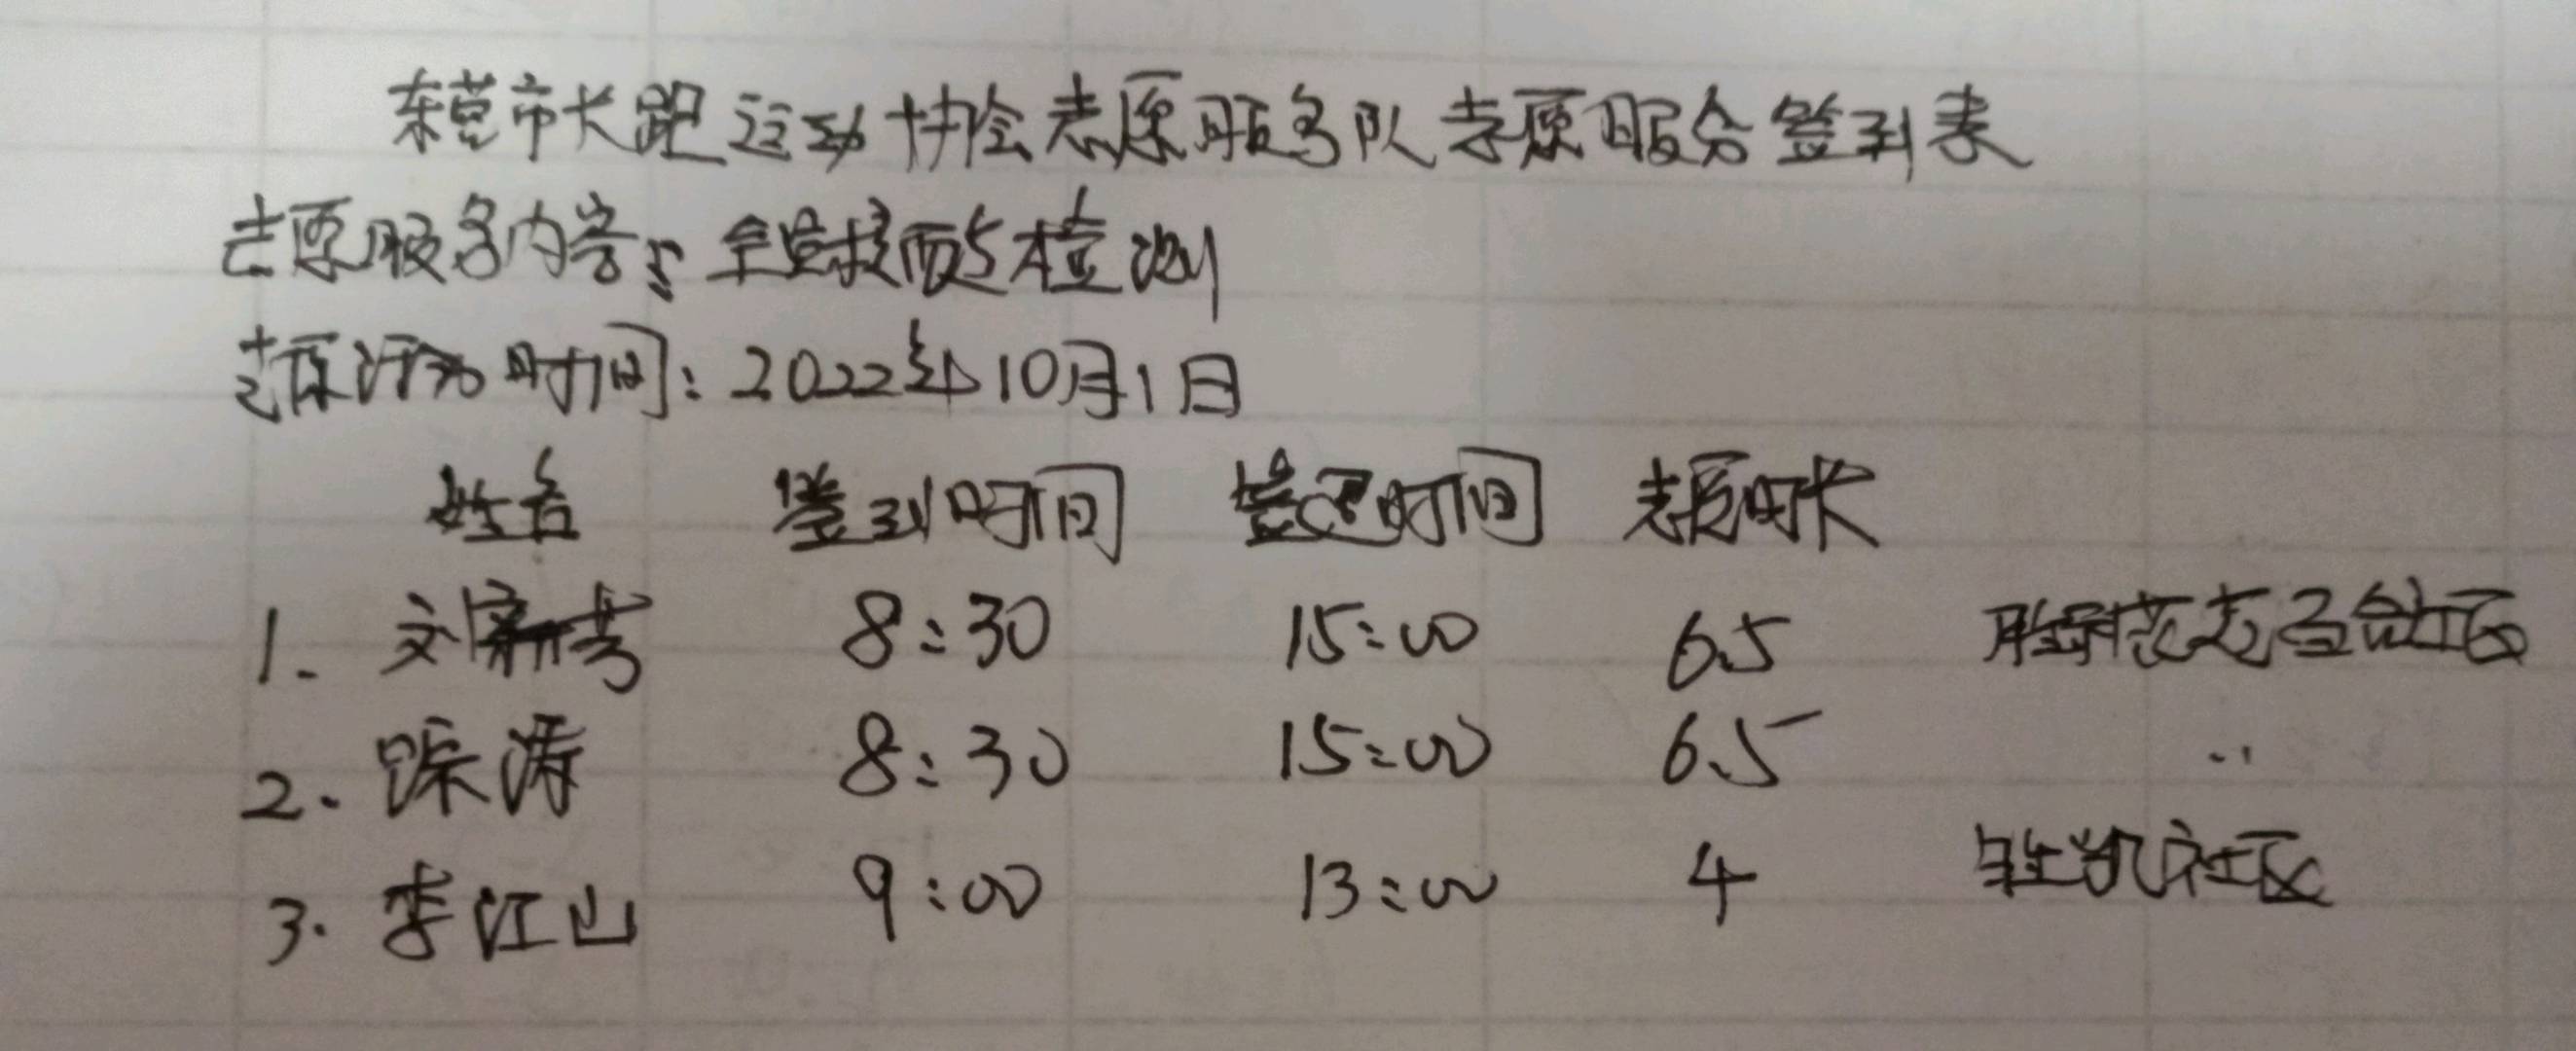 东营市长跑运动协会志愿服务队志愿服务签到表
志愿服务内容:全员核酸检测
志愿服务时间:2022年10月1日
姓名 签到时间 签退时间 志愿时长
1. 8:30 15:00 6.5 社区
2. 涛 8:30 15:00 6.5 ..
3. 李江山 9:00 13:00 4 胜凯社区